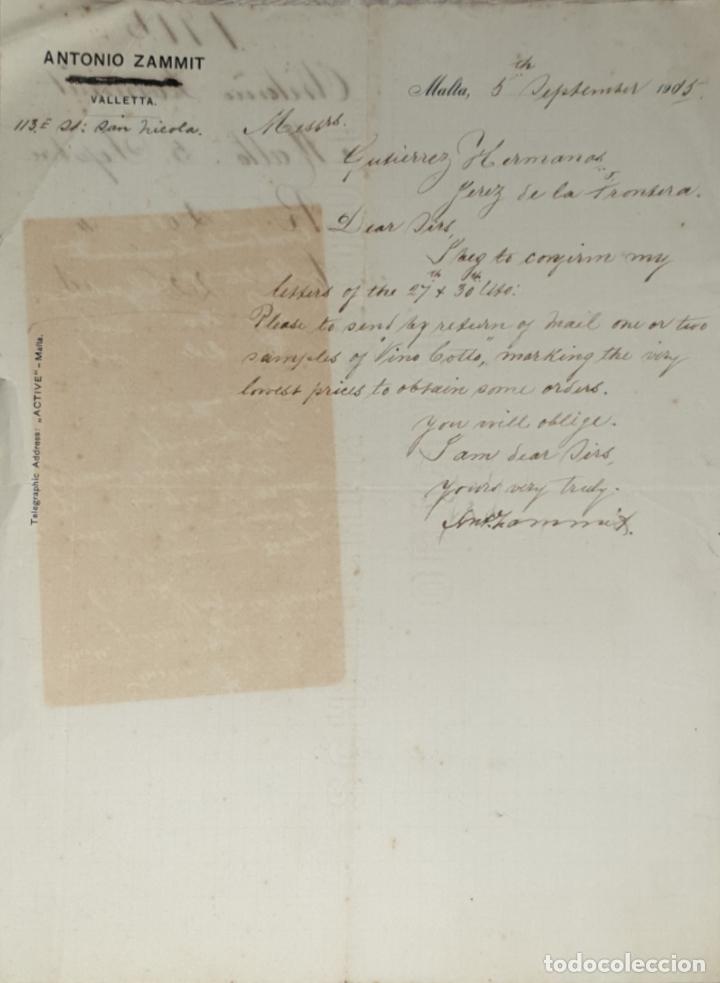 ANTONIO ZAMMIT
VALLETTA.
113.E St: San Nicola.
Malta, 5th September 1905.
Messrs.
Gutiérrez Hermanos
Jerez de la Frontera.
Dear Sirs,
I beg to confirm my
letters of the 27th & 30th Ulto:
Please to send by return of mail one or two
samples of "Vino Cotto", marking the very
lowest prices to obtain some orders.
You will oblige.
I am dear Sirs,
Yours very truly.
Ant. Zammit.
Telegraphic Address: „ACTIVE" – Malta.
todocoleccion